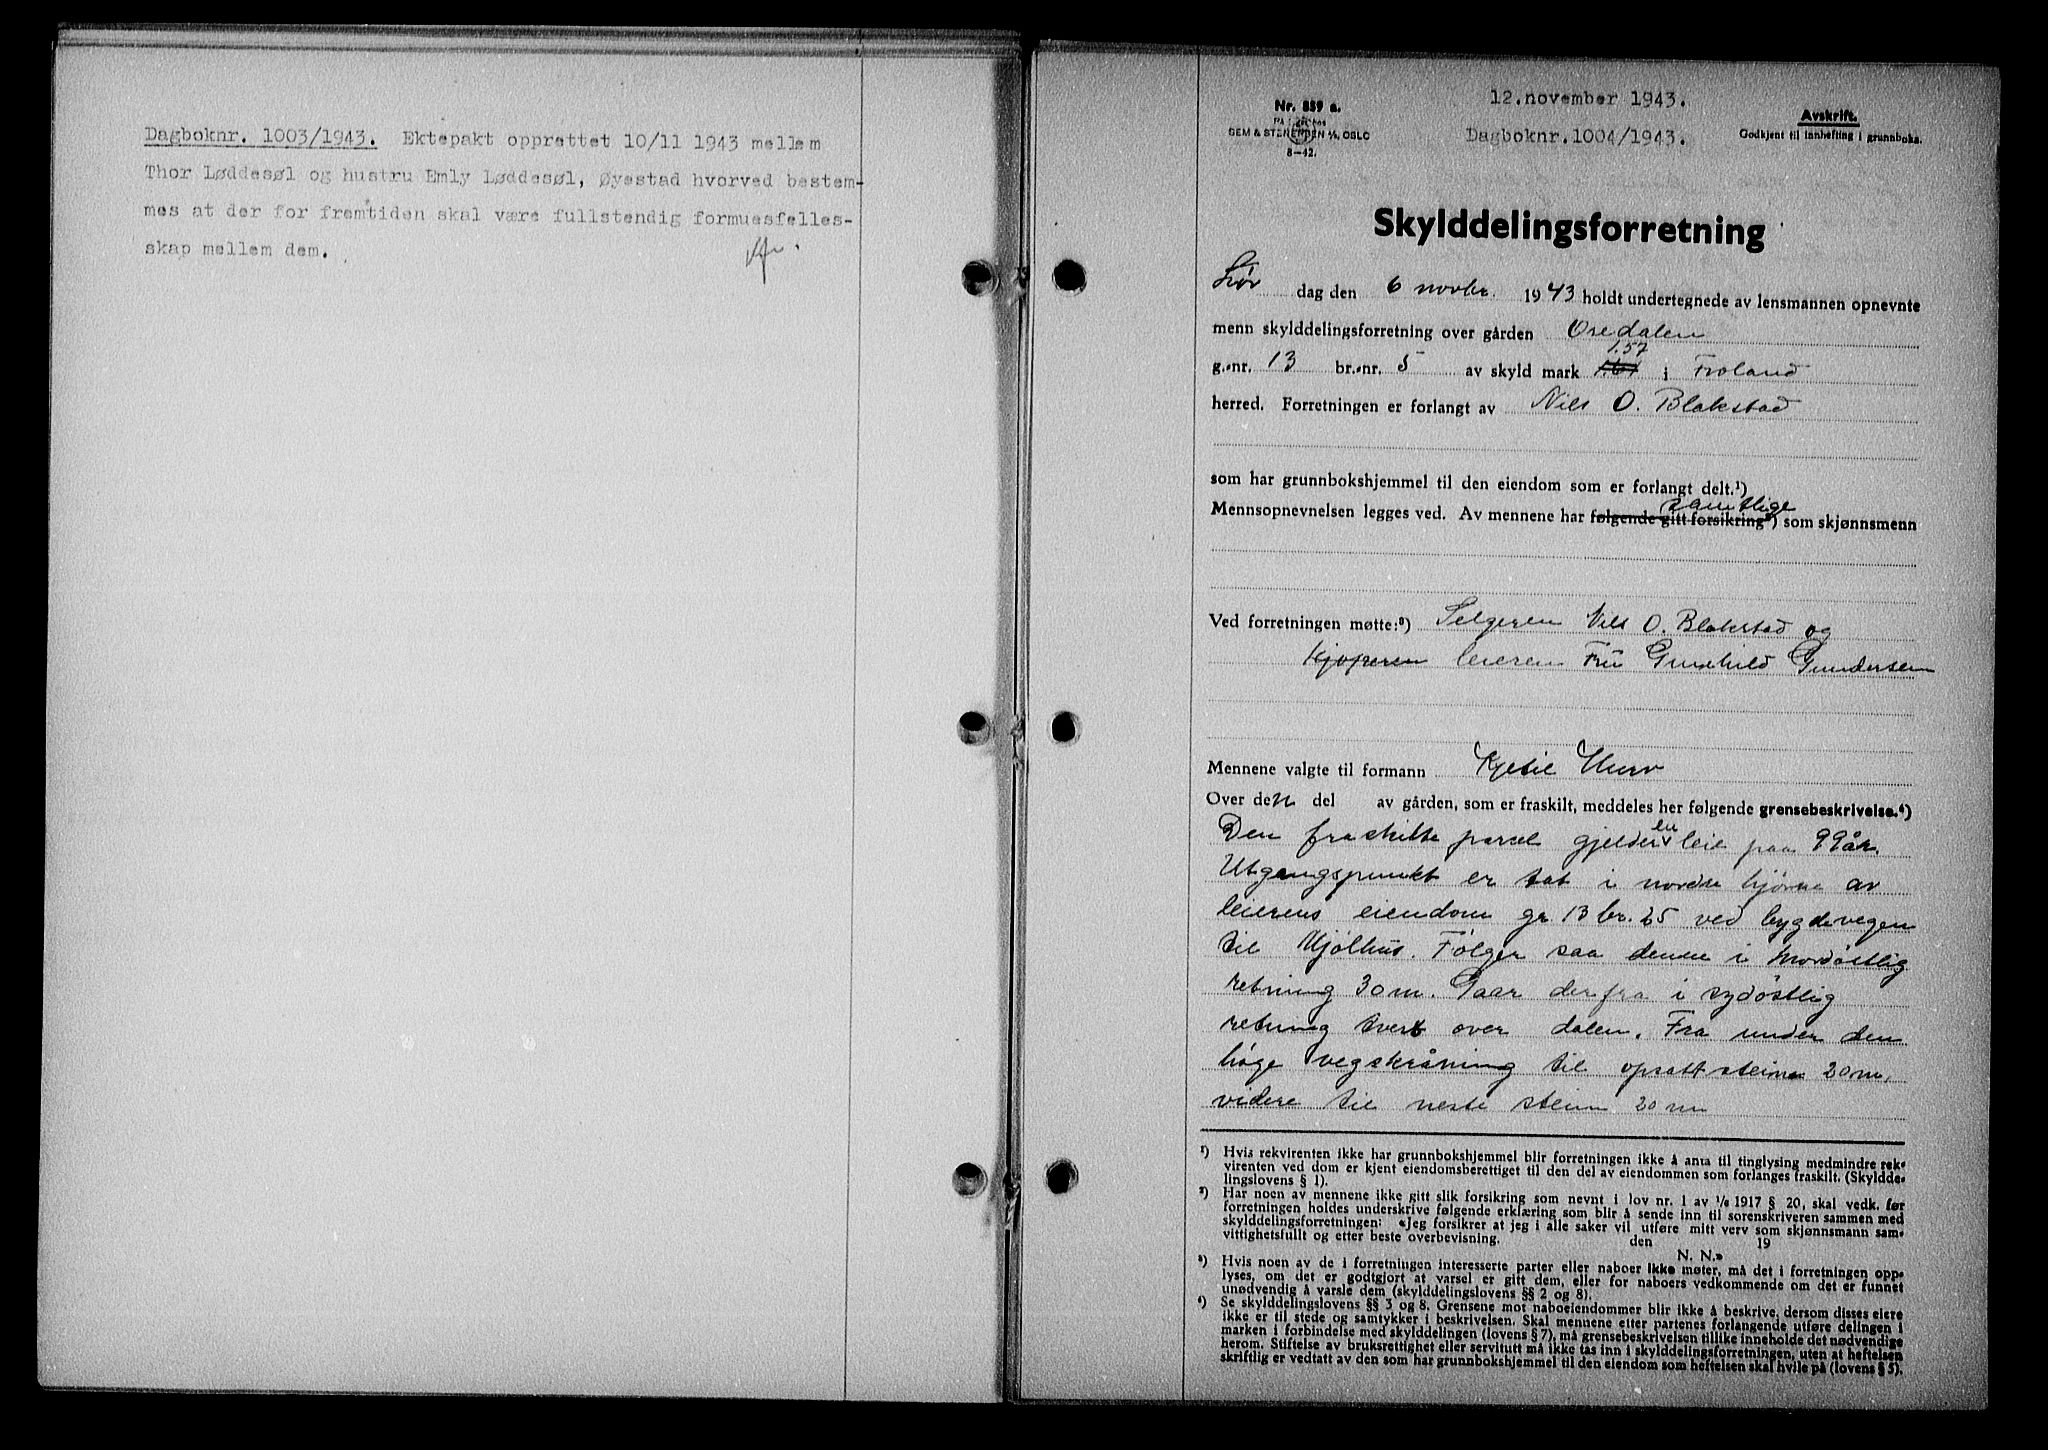 Dagboknr. 1003/1943. Ektepakt opprettet 10/11 1943 mellem
Thor Løddesøl og hustru Emly Løddesøl, Øyestad hvorved bestem-
mes at der for fremtiden skal være fullstendig formuesfelles-
skap mellem dem.
Nr. 859 a.
SEM & STENERSEN A/S, OSLO
8-42.
12. november 1943.
Dagboknr. 1004/1943.
Avskrift.
Godkjent til innhefting i grunnboka.
Skylddelingsforretning
Lør dag den 6 novbr. 1943 holdt undertegnede av lensmannen opnevnte
menn skylddelingsforretning over gården Osedalen
1.57
g.-nr. 13 br.-nr. 5 av skyld mark 1.61 i Froland
herred. Forretningen er forlangt av Nils O. Blakstad
som har grunnbokshjemmel til den eiendom som er forlangt delt.¹)
samtlige
Mennsopnevnelsen legges ved. Av mennene har følgende gitt forsikring²) som skjønnsmenn
Ved forretningen møtte:³) Selgeren Nils O. Blakstad og
Kjøperen leieren Fru Gunhild Gundersen
Mennene valgte til formann Kjetil Hurv
Over den del av gården, som er fraskilt, meddeles her følgende grensebeskrivelse.⁴)
Den fraskilte parsel gjelder en leie paa 99 år.
Utgangspunkt er tat i nordre hjørne av
leierens eiendom gr. 13 br. 25 ved bygdevegen
til Mjølhus. Følger saa denne i nordøstlig
retning 30 m. Gaar derfra i sydøstlig
retning tvert over dalen. Fra under den
høge vegskråning til opsatt steine 20 m.
videre til neste stein 20 m
¹) Hvis rekvirenten ikke har grunnbokshjemmel blir forretningen ikke å anta til tinglysing medmindre rek-
virenten ved dom er kjent eiendomsberettiget til den del av eiendommen som forlanges fraskilt. (Skyldde-
lingslovens § 1).
²) Har noen av mennene ikke gitt slik forsikring som nevnt i lov nr. 1 av 1/6 1917 § 20, skal vedk. før
forretningen holdes underskrive følgende erklæring som blir å sende inn til sorenskriveren sammen med
skylddelingsforretningen: «Jeg forsikrer at jeg i alle saker vil utføre mitt verv som skjønnsmann sam-
vittighetsfullt og etter beste overbevisning. den 19
N. N.»
³) Hvis noen av de i forretningen interesserte parter eller naboer ikke møter, må det i forretningen opp-
lyses, om det er godtgjort at varsel er gitt dem, eller for naboers vedkommende om det er funnet
unødvendig å varsle dem (skylddelingslovens §§ 2 og 8).
⁴) Se skylddelingslovens §§ 3 og 8. Grensene mot naboeiendommer blir ikke å beskrive, dersom disses eiere
ikke er til stede og samtykker i beskrivelsen. Skal mennene etter partenes forlangende utføre delingen i
marken i forbindelse med skylddelingen (lovens § 7), må grensebeskrivelsen tillike inneholde det nødvendige
herom. Stiftelse av bruksrettighet eller servitutt må ikke tas inn i skylddelingsforretningen, uten at heftelsen
skriftlig er vedtatt av den som har grunnbokshjemmel til den eiendom som heftelsen skal hvile på (lovens § 5).